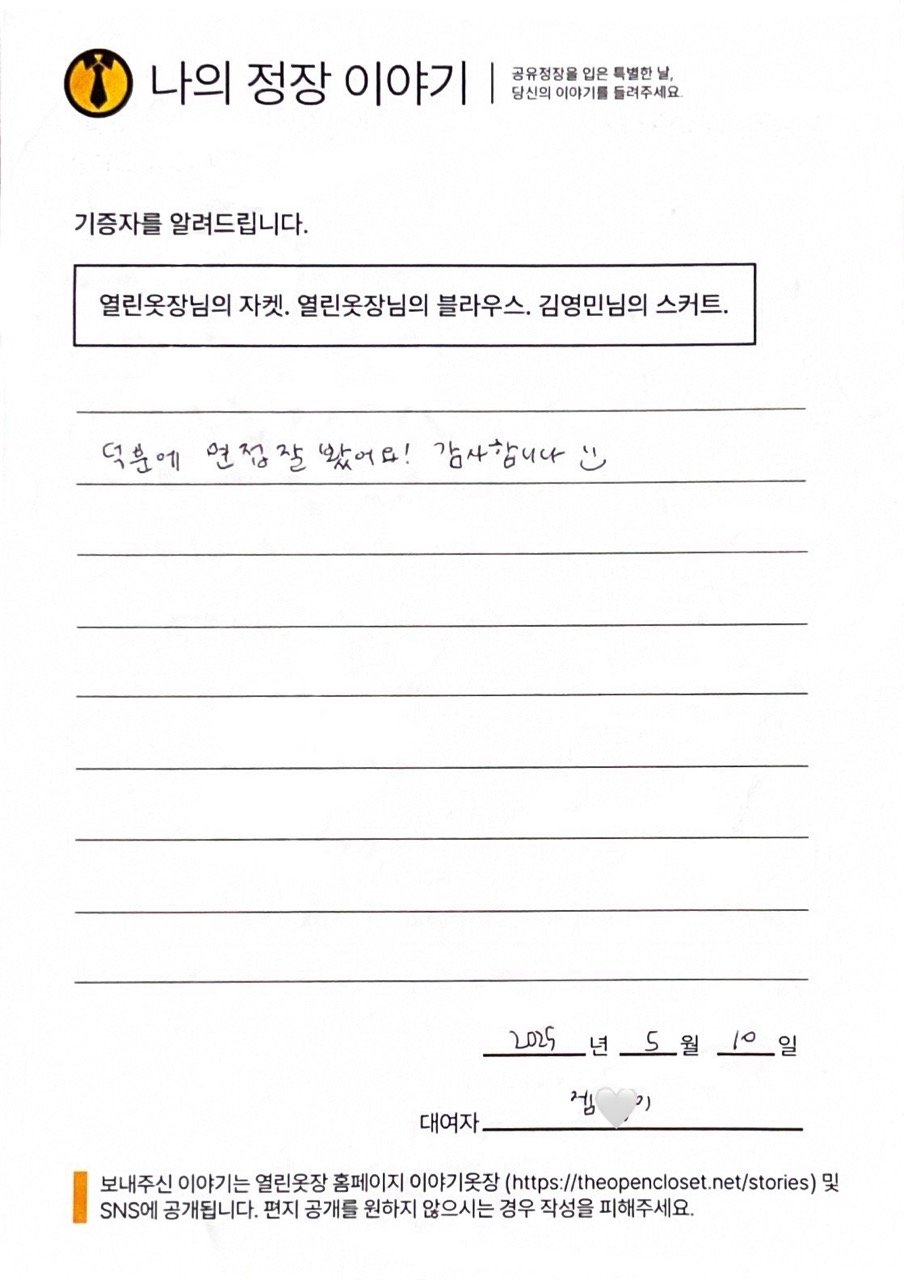 나의 정장 이야기
공유정장을 입은 특별한 날,
당신의 이야기를 들려주세요.
기증자를 알려드립니다.
열린옷장님의 자켓. 열린옷장님의 블라우스. 김영민님의 스커트.
덕분에 면접 잘 봤어요! 감사합니다
2025 년 5 월 10 일
대여자
보내주신 이야기는 열린옷장 홈페이지 이야기옷장 (https://theopencloset.net/stories) 및
SNS에 공개됩니다. 편지 공개를 원하지 않으시는 경우 작성을 피해주세요.